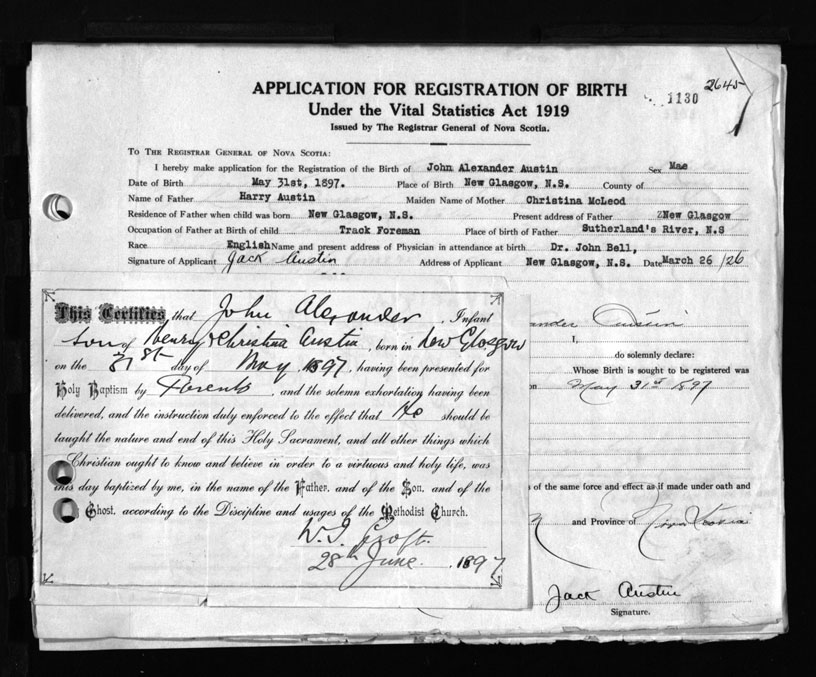 2645
1130
APPLICATION FOR REGISTRATION OF BIRTH
Under the Vital Statistics Act 1919
Issued by The Registrar General of Nova Scotia.
To The Registrar General of Nova Scotia:
I hereby make application for the Registration of the Birth of John Alexander Austin Sex Mae
Date of Birth May 31st, 1897. Place of Birth New Glasgow, N.S. County of
Name of Father Harry Austin Maiden Name of Mother Christina McLeod
Residence of Father when child was born New Glasgow, N.S. Present address of Father New Glasgow
Occupation of Father at Birth of child Track Foreman Place of birth of Father Sutherland's River, N.S
Race English Name and present address of Physician in attendance at birth Dr. John Bell,
Signature of Applicant Jack Austin Address of Applicant New Glasgow, N.S. Date March 26 /26
This Certifies that John Alexander, Infant
son of Henry & Christina Austin, born in New Glasgow
on the 31st day of May 1897, having been presented for
Holy Baptism by Parents, and the solemn exhortation having been
delivered, and the instruction duly enforced to the effect that He should be
taught the nature and end of this Holy Sacrament, and all other things which
Christian ought to know and believe in order to a virtuous and holy life, was
this day baptized by me, in the name of the Father, and of the Son, and of the
Ghost, according to the Discipline and usages of the Methodist Church.
28th June. 1897
ander Austin
I,
do solemnly declare:
Whose Birth is sought to be registered was
on May 31st 1897
of the same force and effect as if made under oath and
and Province of Nova Scotia
Jack Austin
Signature.